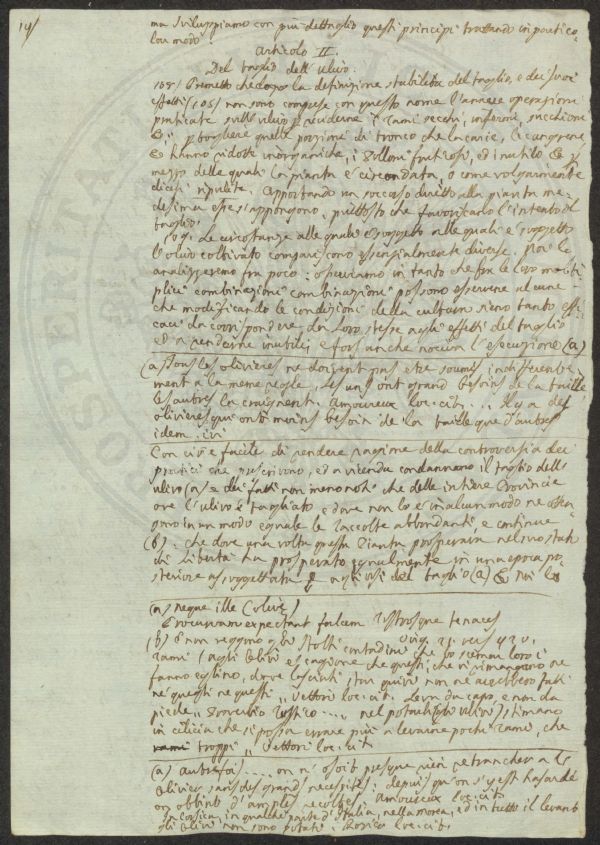 14/
ma sviluppiamo con più dettaglio questi principj trattando in partico-
lar modo.
Articolo II.
Del taglio dell'Ulivo.
108/ Premetto che dopo la definizione stabilita del taglio, e dei suoi
effetti (105) non comprese con questo nome l'annee operazioni
praticate sull'ulivo p reciderne i rami secchi, infermi, succhione
p togliere quelle porzioni di tronco che la carie, le cangrene
hanno ridotte inorganiche, i polloni fruticosi, ed inutili
mezzo delle quali la pianta è circondata, o come volgarmente
dicesi ripulite. Apportando un soccorso diretto alla pianta me-
desima esse si oppongono, piuttosto che favoriscano l'intento del
taglio.
109. Le circostanze alle quali è soggetto alle quali è soggetto
l'olivo coltivato compariscono essenzialmente diverse. Noi le
analizzeremo fra poco: osserviamo in tanto che fra le loro molti
plici combinazioni combinazioni possono esservene alcune
che modificando le condizioni della cultura sieno tanto effi-
caci da corrispondere da loro stesse agli effetti del taglio
ed a renderne inutile, e fors'anche nociva l'esecuzione (a)
(a) Tous les oliviers ne doivent pas etre soumis indifferente-
ment a la meme regle, les uns ont grand besoin de la taille
les autres la craignent. Amoureux loc. cit. „ Il y a des
oliviers qui ont moins besoin de la taille que d'autres
idem. ivi
Con ciò è facile di rendere ragione della controversia dei
pratici che prescrivono, ed a vicenda condannano il taglio dell'
ulivo (a) e dei fatti non meno noti che delle intiere Provincie
ove l'ulivo è tagliato, e dove non lo è in alcun modo ne otten
gono in un modo eguale le raccolte abbondanti, e continue
(b): che dove una volta questa pianta prosperava nel suo stato
di libertà ha prosperato egualmente in una epoca po-
steriore assoggettata agli usi del taglio (a)
(a) neque ille (olivis)
Procurvam expectant falcem rastrosque tenaces
Virg. 21. vers 420.
(b) E non veggono gli stolti contadini che
rami (agli Ulivi) è cagione che questi, che vi rimangono ne
fanno eglino, dove lasciati star quivi non ne avrebbero fatti
ne questi ne questi „ Vettori loc. cit. Leva da capo, e non da
piede „ Proverbio rustico .... „ nel potar (gli ulivi) stimano
in cilicia che si possa errare più a levarne pochi rami, che
troppi „ Vettori loc. cit.
(a) autrefois .... on n'osoit presque rien retrancher a l'
olivier sans des grands necessités: depuis qu'on s'y est hasardé
on obtint d'amples recoltes. Amoureux loc. cit.
in Corsica, in qualche parte d'Italia, nella morea, ed in tutto il levante
gli Ulivi non sono potati. Rosier loc. cit.